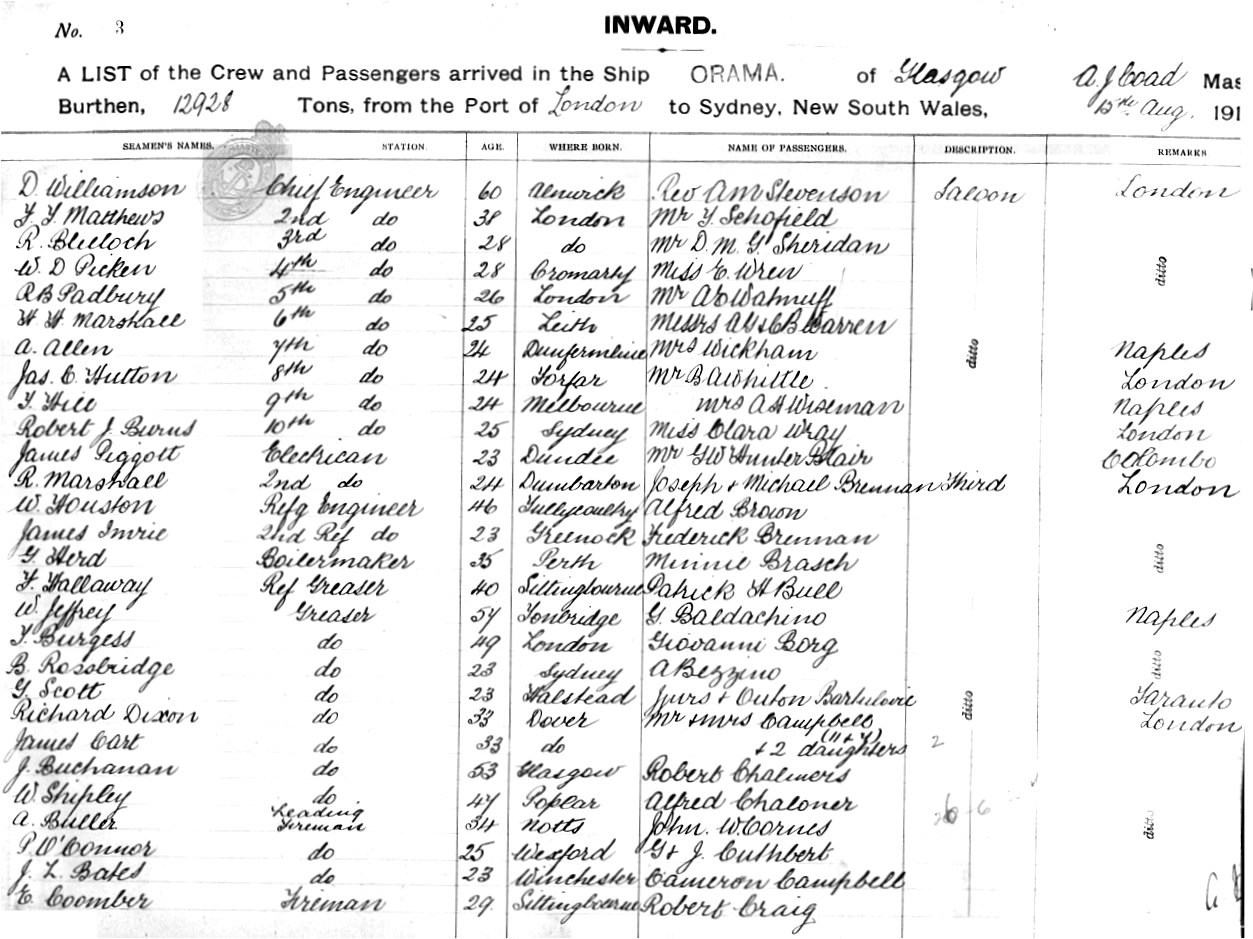 No. 3
INWARD.
A LIST of the Crew and Passengers arrived in the Ship ORAMA. of Glasgow A. J. Coad Mas
Burthen, 12928 Tons, from the Port of London to Sydney, New South Wales, 15th Aug. 191
SEAMEN'S NAMES. STATION. AGE. WHERE BORN. NAME OF PASSENGERS. DESCRIPTION. REMARKS
D. Williamson Chief Engineer 60 Alnwick Rev A M Stevenson Saloon London
F. Y. Matthews 2nd do 38 London Mr Y. Schofield
R. Blelloch 3rd do 28 do Mr D. M. G. Sheridan
W. D Picken 4th do 28 Cromarty Miss E. Wren ditto
R B Padbury 5th do 26 London Mr
H. H. Marshall 6th do 25 Leith Messrs Warren
A. Allen 7th do 24 Dunfermline Mrs Wickham ditto Naples
Jas. C. Hutton 8th do 24 Forfar Mr B A Whittle. London
Hill 9th do 24 Melbourne Mrs A H Wiseman Naples
Robert J. Burns 10th do 25 Sydney Miss Clara Wray London
James Piggott Electrican 23 Dundee Mr G W Hunter Blair Colombo
R. Marshall 2nd do 24 Dumbarton Joseph + Michael Brennan Third London
W. Houston Refg Engineer 46 Alfred Brown
James Imrie 2nd Ref do 23 Greenock Frederick Brennan
G. Herd Boilermaker 35 Perth Minnie Brasch ditto
F. Hallaway Ref Greaser 40 Sittingbourne Patrick H Bull
W. Jeffrey Greaser 57 Tonbridge G. Baldachino Naples
Burgess do 49 London Giovanni Borg
B. Rossbridge do 23 Sydney A Bezzino ditto
G. Scott do 23 Halstead ditto Taranto
Richard Dixon do 33 Dover Mr + Mrs Campbell London
James Cart do 33 do + 2 daughters (11 + 7) 2
J. Buchanan do 53 Glasgow Robert Chalmers
W. Shipley do 47 Poplar Alfred Chaloner
A. Buller Leading Fireman 34 Notts John. W. Cornes ditto
P. O'Connor do 25 Wexford G + J. Cuthbert
J. L. Bates do 23 Winchester Cameron Campbell
E. Coomber Fireman 29 Sittingbourne Robert Craig